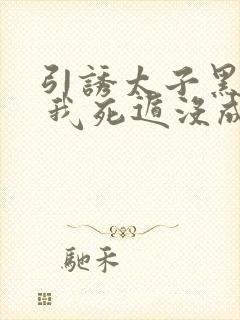 引誘太子黑
我死遁沒成
馳禾